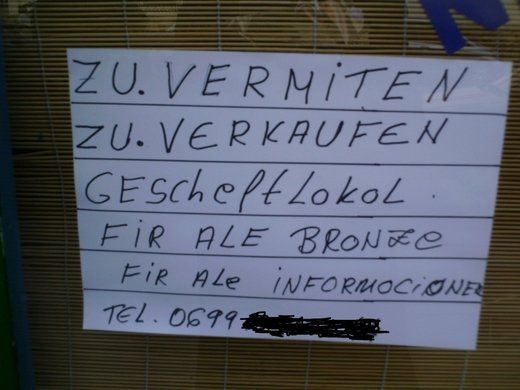 ZU. VERMiTEN
ZU. VERKAUFEN
GEScheftLokol.
FiR ALE BRONZe
FiR ALe iNFORMOCiONER
TEL. 0699